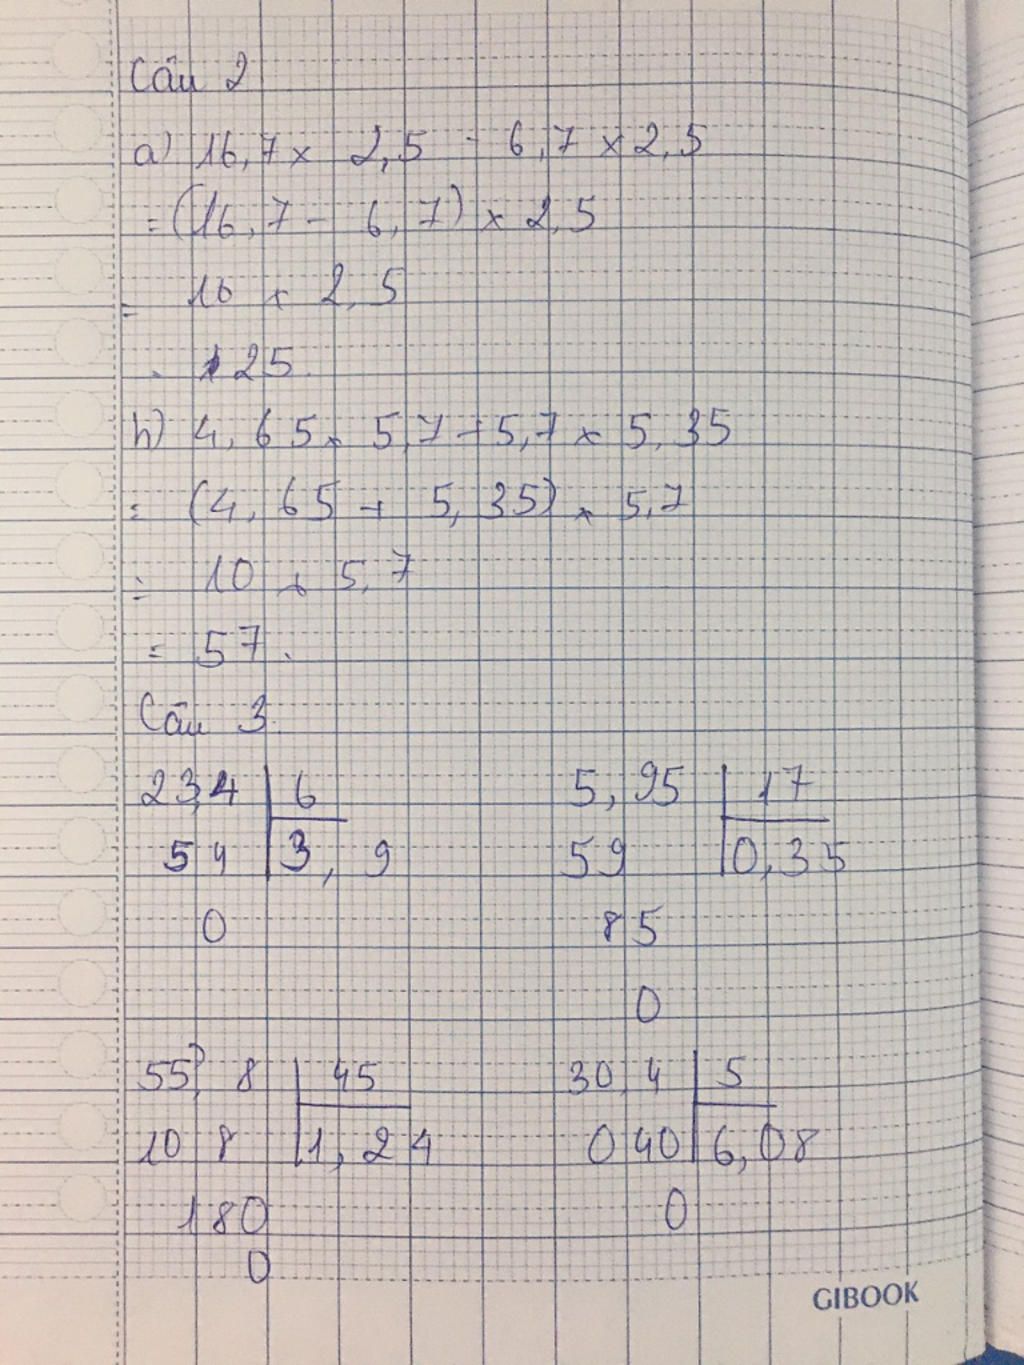 Câu 2
a) 16,7 x 2,5 - 6,7 x 2,5
= (16,7 - 6,7) x 2,5
= 10 x 2,5
= 125.
b) 4,65 x 5,7 + 5,7 x 5,35
= (4,65 + 5,35) x 5,7
= 10 x 5,7
= 57.
Câu 3.
23,4 6
54 3,9
0
5,95 17
59 0,35
85
0
55,8 45
10 8 1,24
180
0
30,4 5
040 6,08
0
GIBOOK